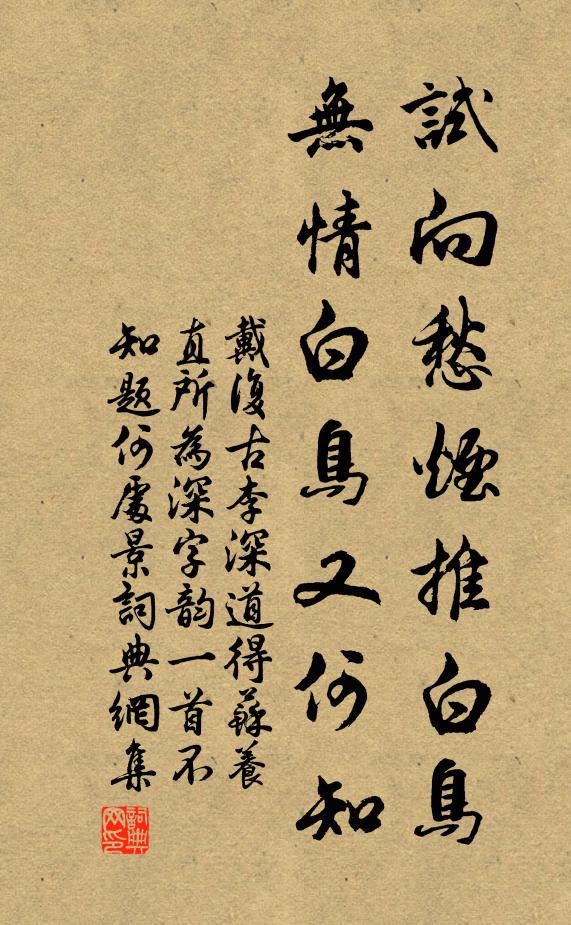 試向愁煙推白鳥
無情白鳥又何知
戴復古李深道得蘇養
直所為深字韵一首不
知題何處景詞典網集
詞典网印